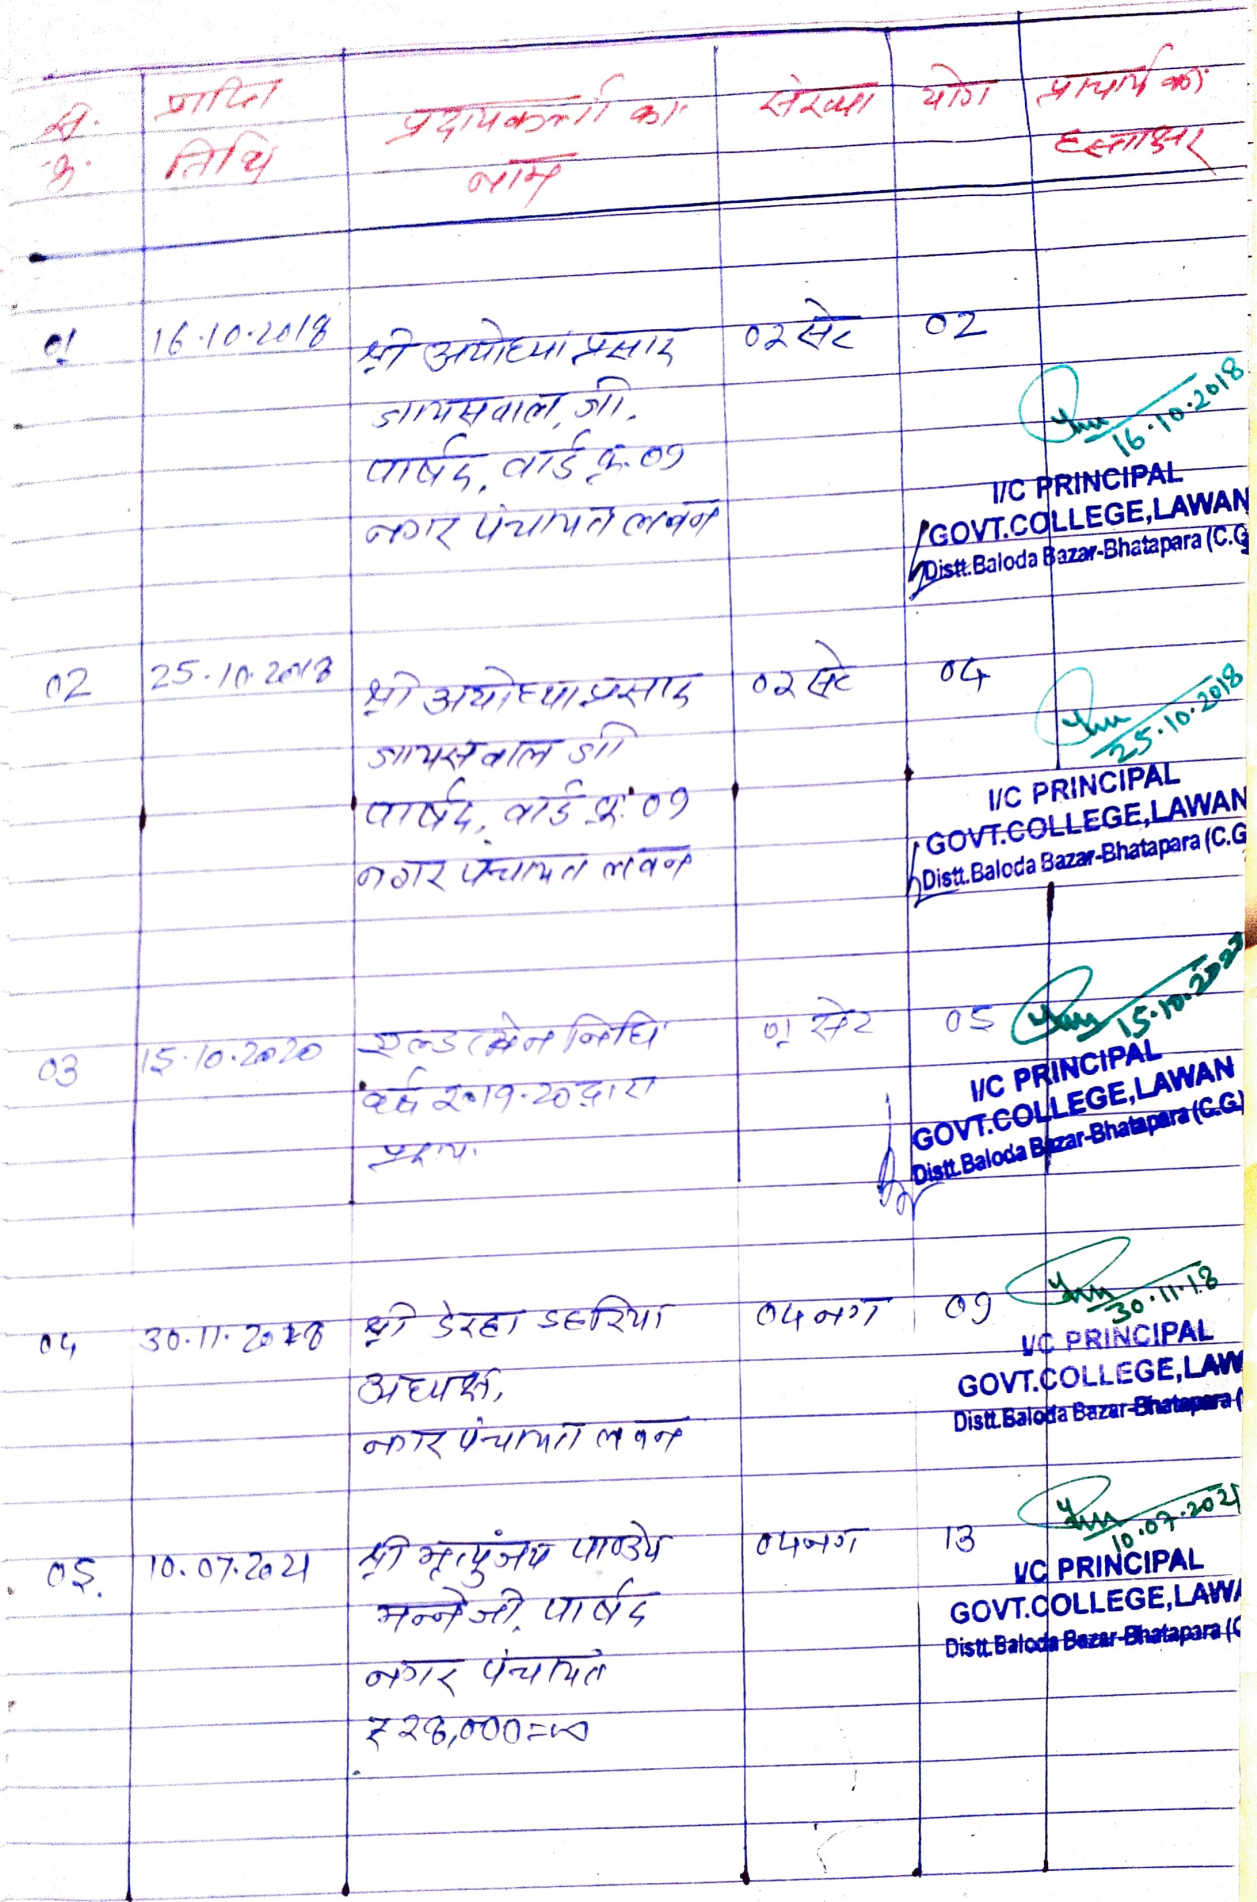 स. क्र.
प्राप्ति तिथि
प्रदायकर्ता का नाम
संख्या
योग
प्राचार्य का हस्ताक्षर
01
16.10.2018
श्री अयोध्या प्रसाद
जायसवाल जी,
पार्षद, वार्ड क्र. 09
नगर पंचायत लवन
02 सेट
02
16.10.2018
I/C PRINCIPAL
GOVT.COLLEGE,LAWAN
Distt.Baloda Bazar-Bhatapara (C.G
02
25.10.2018
श्री अयोध्या प्रसाद
जायसवाल जी
पार्षद, वार्ड क्र. 09
नगर पंचायत लवन
02 सेट
04
25.10.2018
I/C PRINCIPAL
GOVT.COLLEGE,LAWAN
Distt.Baloda Bazar-Bhatapara (C.G
03
15.10.2020
एल्डरमेन निधि
वर्ष 2019-20 द्वारा
01 सेट
05
15.10.2020
I/C PRINCIPAL
GOVT.COLLEGE,LAWAN
Distt.Baloda Bazar-Bhatapara (C.G.)
04
30.11.2018
श्री डेरहा डहरिया
अध्यक्ष,
नगर पंचायत लवन
04 नग
09
30.11.18
I/C PRINCIPAL
GOVT.COLLEGE,LAW
Distt.Baloda Bazar-Bhatapara (
05.
10.07.2021
श्री मृत्युंजय पाण्डेय
मन्ने जी, पार्षद
नगर पंचायत
₹ 28,000=00
04 नग
13
10.07.2021
I/C PRINCIPAL
GOVT.COLLEGE,LAWA
Distt.Baloda Bazar-Bhatapara (C